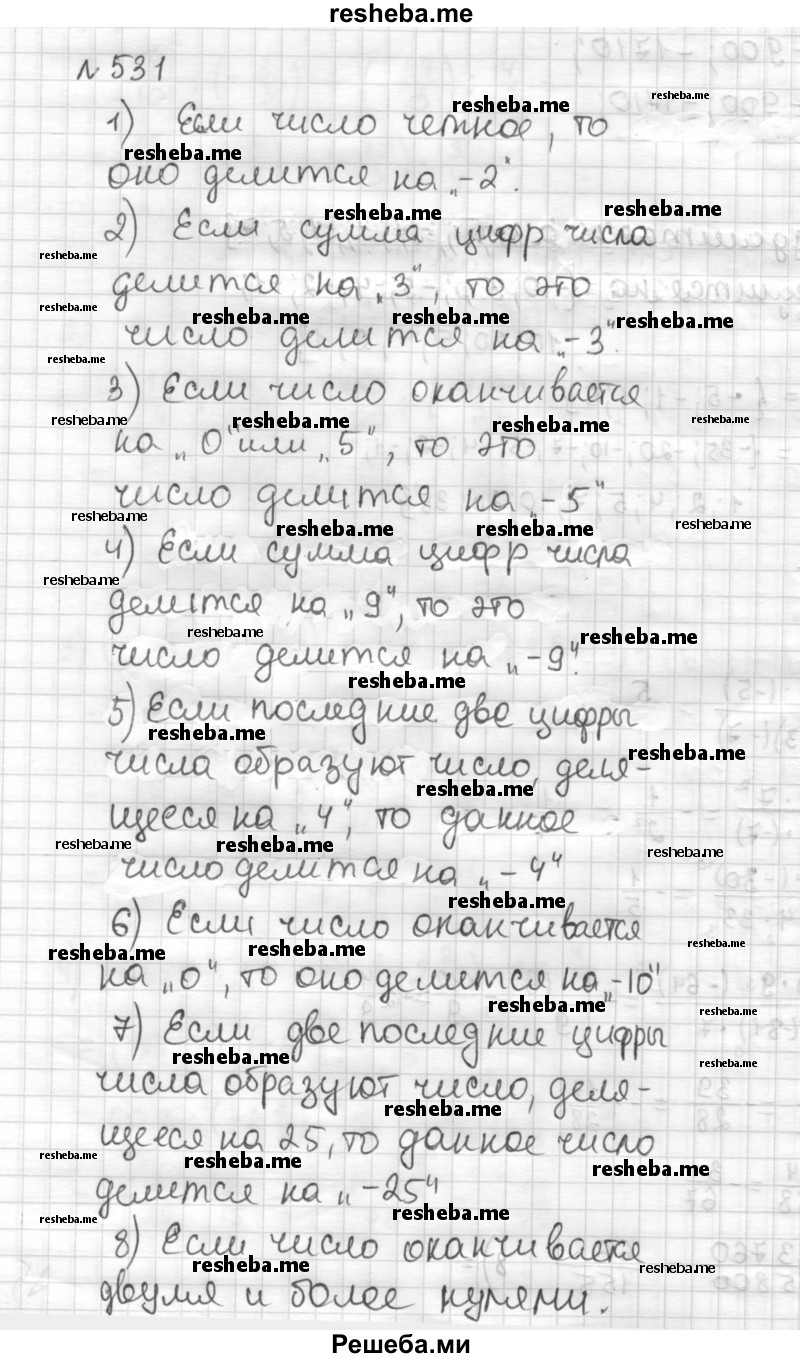 resheba.me
№ 531
1) Если число четное, то
оно делится на „-2".
2) Если сумма цифр числа
делится на „3", то это
число делится на „-3".
3) Если число оканчивается
на „0" или „5", то это
число делится на „-5"
4) Если сумма цифр числа
делится на „9", то это
число делится на „-9".
5) Если последние две цифры
числа образуют число, деля-
щееся на „4", то данное
число делится на „-4"
6) Если число оканчивается
на „0", то оно делится на „-10"
7) Если две последние цифры
числа образуют число, деля-
щееся на 25, то данное число
делится на „-25"
8) Если число оканчивается
двумя и более нулями.
Решеба.ми